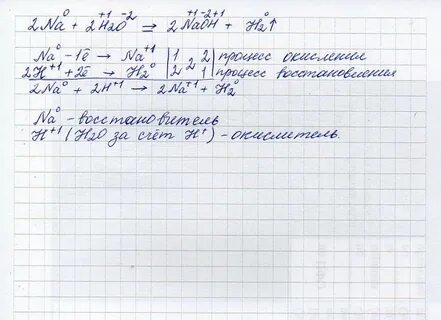 2Na⁰ + 2H₂⁺¹O⁻² = 2Na⁺¹O⁻²H⁺¹ + H₂⁰↑
Na⁰ - 1ē → Na⁺¹ | 1 | 2 | 2 | процесс окисления
2H⁺¹ + 2ē → H₂⁰ | 2 | 2 | 1 | процесс восстановления
2Na⁰ + 2H⁺¹ → 2Na⁺¹ + H₂⁰
Na⁰ - восстановитель
H⁺¹ (H₂O за счёт H⁺) - окислитель.